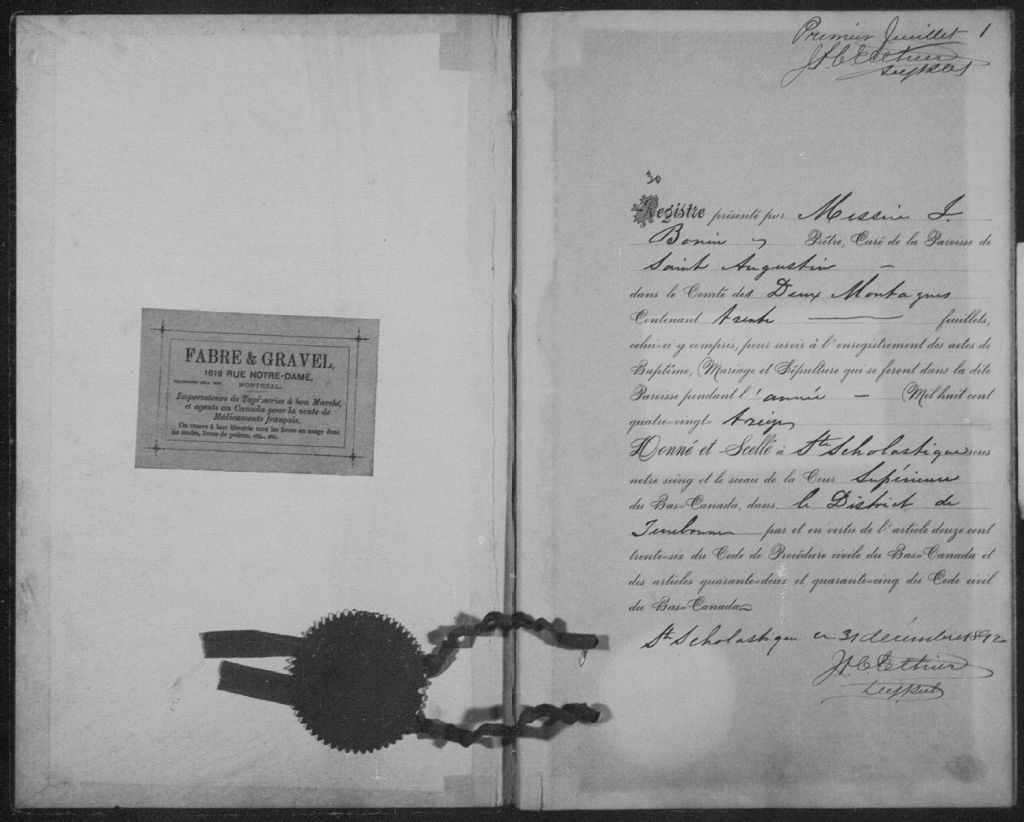 FABRE & GRAVEL,
1619 RUE NOTRE-DAME,
MONTREAL.
Importateurs de Tapisseries à bon Marché,
et agents au Canada pour la vente de
Médicaments français.
On trouve à leur librairie tous les livres en usage dans
les écoles, livres de prières, etc., etc.
Premier feuillet 1
J A C Ethier
30
Registre présenté par Messire J.
Bonin Prêtre, Curé de la Paroisse de
Saint Augustin
dans le Comté des Deux Montagnes
Contenant trente feuillets,
celui-ci y compris, pour servir à l'enregistrement des actes de
Baptême, Mariage et Sépulture qui se feront dans la dite
Paroisse pendant l'année Mil huit cent
quatre-vingt-treize
Donné et Scellé à Ste Scholastique sous
notre seing et le sceau de la Cour Supérieure
du Bas-Canada, dans le District de
Terrebonne par et en vertu de l'article douze cent
trente-six du Code de Procédure civile du Bas-Canada et
des articles quarante-deux et quarante-cinq du Code civil
du Bas-Canada
St Scholastique ce 31 décembre 1892
J A C Ethier